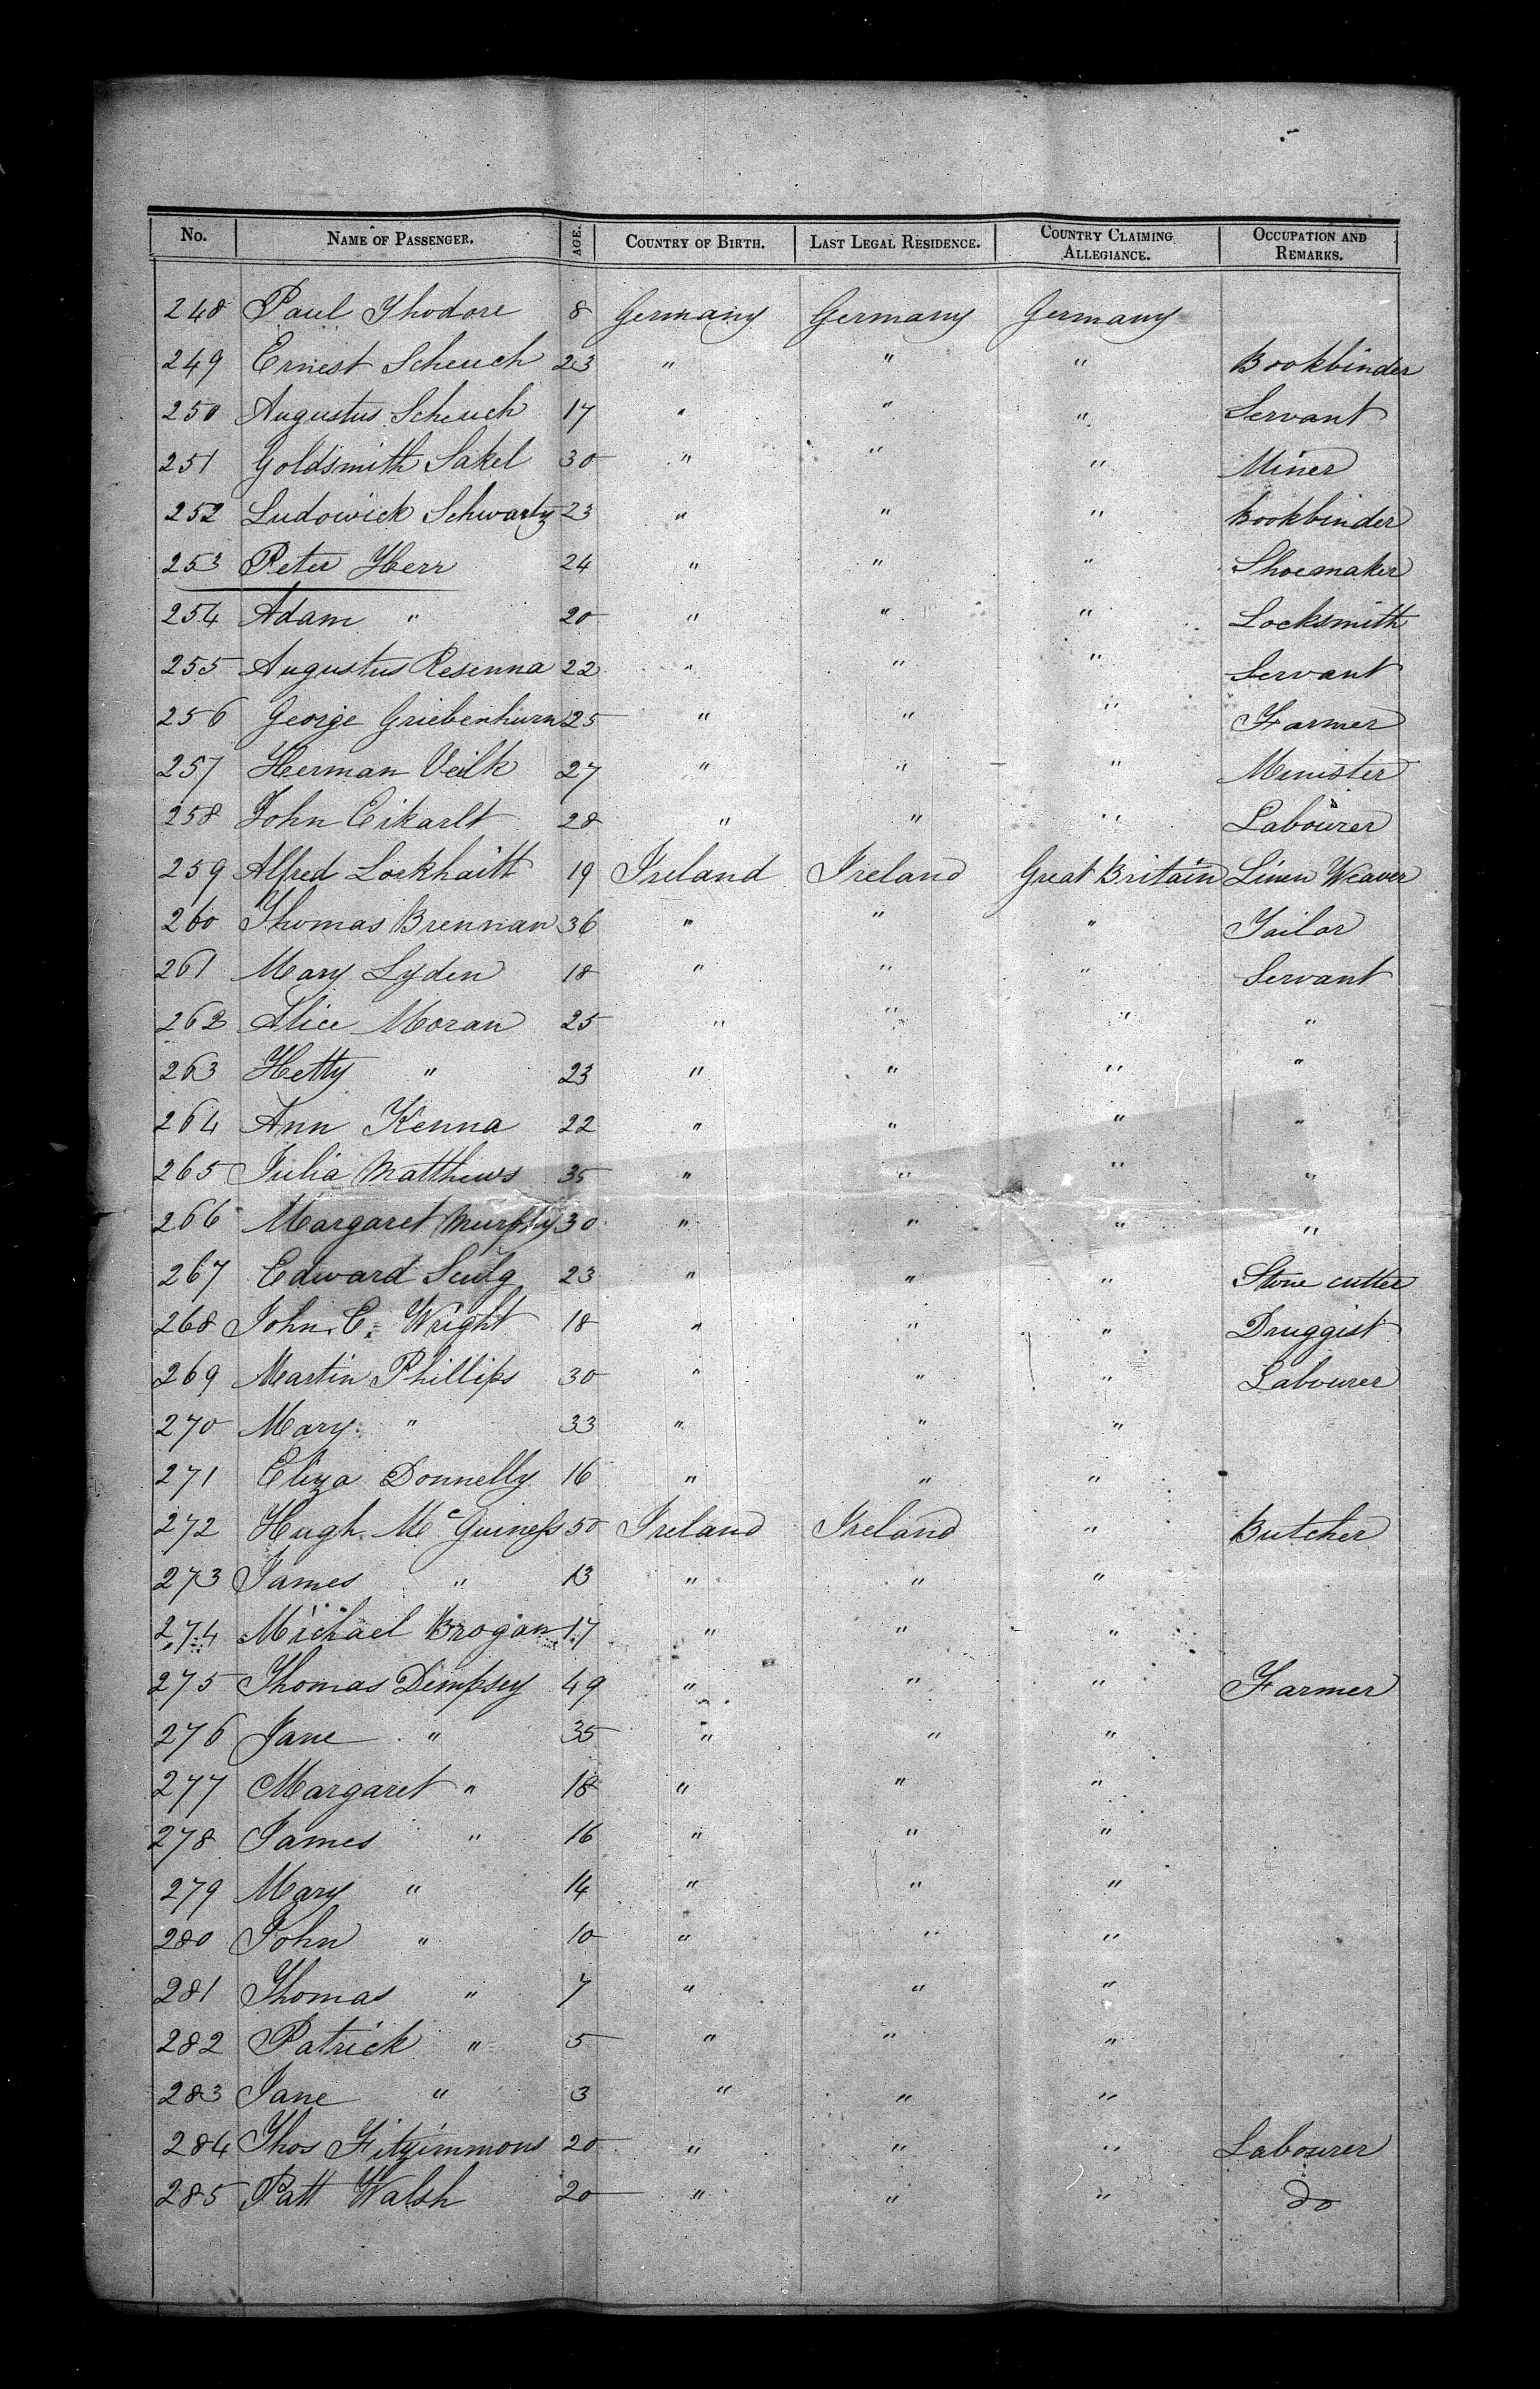 No. NAME OF PASSENGER. AGE. COUNTRY OF BIRTH. LAST LEGAL RESIDENCE. COUNTRY CLAIMING ALLEGIANCE. OCCUPATION AND REMARKS.
248 Paul Thodore 8 Germany Germany Germany
249 Ernest Scheuch 23 " " " Bookbinder
250 Augustus Scheuch 17 " " " Servant
251 Goldsmith Sakel 30 " " " Miner
252 Ludowick Schwartz 23 " " " Bookbinder
253 Peter Herr 24 " " " Shoemaker
254 Adam " 20 " " " Locksmith
255 Augustus Resenna 22 " " " Servant
256 George Griebenhurn 25 " " " Farmer
257 Herman Veilk 27 " " " Minister
258 John Eikarlt 28 " " " Labourer
259 Alfred Lorkhaitt 19 Ireland Ireland Great Britain Linen Weaver
260 Thomas Brennan 36 " " " Tailor
261 Mary Lyden 18 " " " Servant
262 Alice Moran 25 " " " "
263 Hetty " 23 " " " "
264 Ann Kenna 22 " " " "
265 Julia Matthews 35 " " " "
266 Margaret Murphy 30 " " " "
267 Edward 23 " " " Stone cutter
268 John C. Wright 18 " " " Druggist
269 Martin Phillips 30 " " " Labourer
270 Mary " 33 " " "
271 Eliza Donnelly 16 " " "
272 Hugh McGuiness 50 Ireland Ireland " Butcher
273 James " 13 " " "
274 Michael Brogan 17 " " "
275 Thomas Dempsey 49 " " " Farmer
276 Jane " 35 " " "
277 Margaret " 18 " " "
278 James " 16 " " "
279 Mary " 14 " " "
280 John " 10 " " "
281 Thomas " 7 " " "
282 Patrick " 5 " " "
283 Jane " 3 " " "
284 Thos Fitzimmons 20 " " " Labourer
285 Patt Walsh 20 " " " do